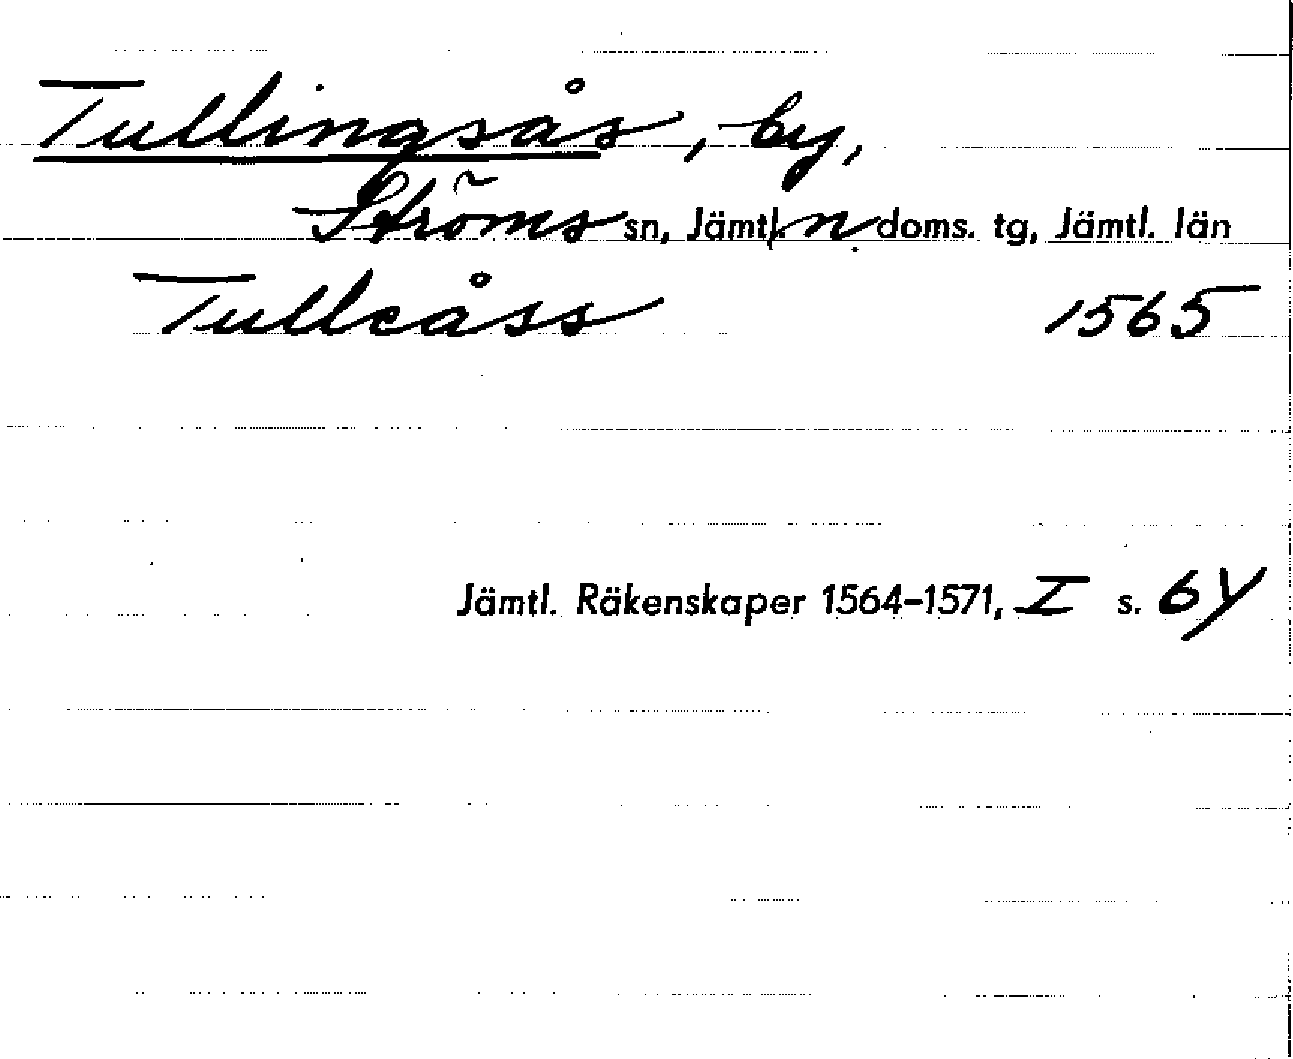 Tullingsås, by,
Ströms sn, Jämtl. n doms. tg, Jämtl. län
Tulleåss 1565
Jämtl. Räkenskaper 1564-1571, I s. 64